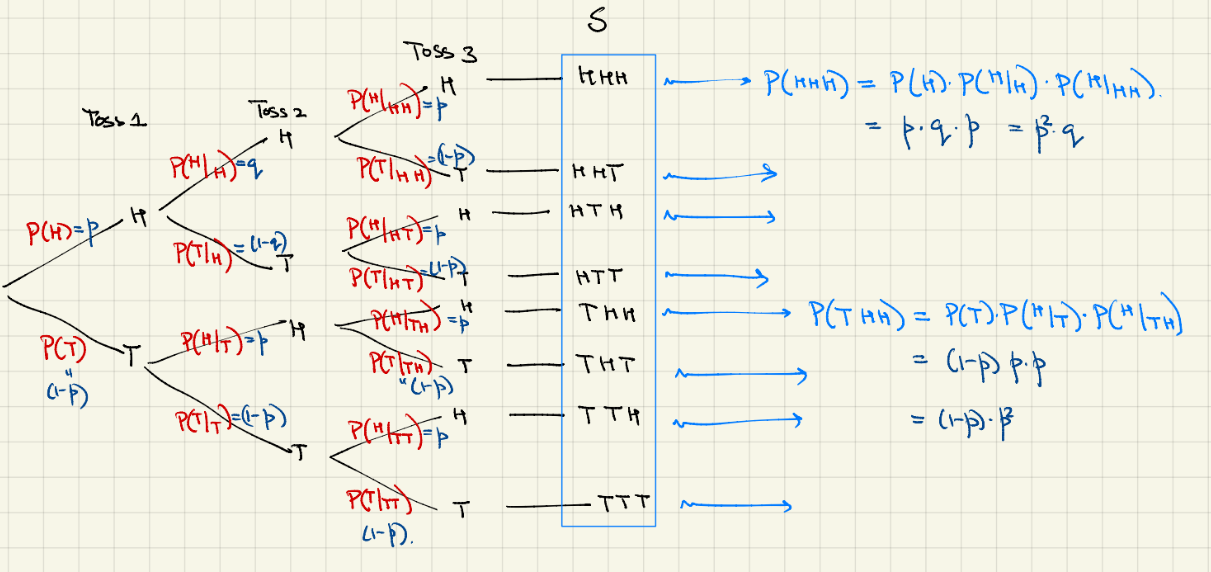 S
Toss 1
Toss 2
Toss 3
P(H)=p
H
P(T)
"
(1-p)
T
P(H|H)=q
H
P(T|H)=(1-q)
T
P(H|T)=p
H
P(T|T)=(1-p)
T
P(H|HH)=p
H
P(T|HH)=(1-p)
T
P(H|HT)=p
H
P(T|HT)=(1-p)
T
P(H|TH)=p
H
P(T|TH)
"(1-p)
T
P(H|TT)=p
H
P(T|TT)
(1-p).
T
HHH
HHT
HTH
HTT
THH
THT
TTH
TTT
P(HHH) = P(H).P(H|H).P(H|HH).
= p.q.p = p².q
P(THH) = P(T).P(H|T).P(H|TH)
= (1-p) p.p
= (1-p).p²